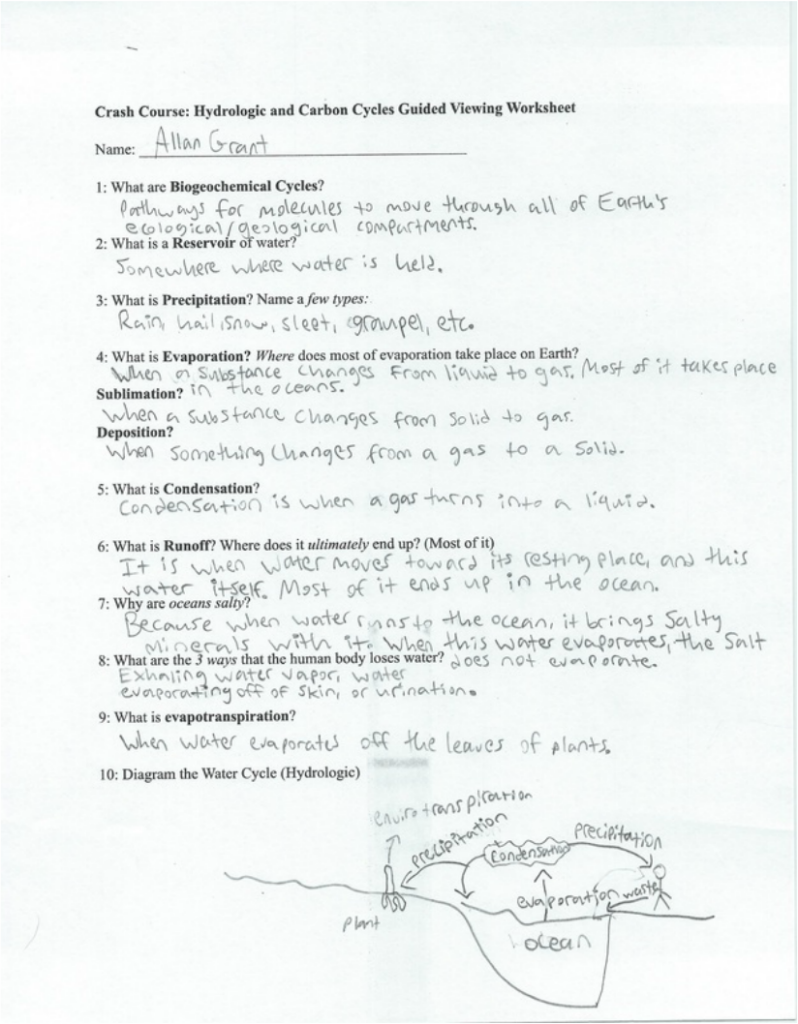 Crash Course: Hydrologic and Carbon Cycles Guided Viewing Worksheet
Name: Allan Grant
1: What are Biogeochemical Cycles?
Pathways for molecules to move through all of Earth's
ecological/geological compartments.
2: What is a Reservoir of water?
Somewhere where water is held.
3: What is Precipitation? Name a few types:
Rain, hail, snow, sleet, graupel, etc.
4: What is Evaporation? Where does most of evaporation take place on Earth?
When a substance changes from liquid to gas. Most of it takes place
Sublimation? in the oceans.
When a substance changes from solid to gas.
Deposition?
When something changes from a gas to a solid.
5: What is Condensation?
Condensation is when a gas turns into a liquid.
6: What is Runoff? Where does it ultimately end up? (Most of it)
It is when water moves toward its resting place, and this
water itself. Most of it ends up in the ocean.
7: Why are oceans salty?
Because when water runs to the ocean, it brings salty
minerals with it. When this water evaporates, the salt
8: What are the 3 ways that the human body loses water? does not evaporate.
Exhaling water vapor, water
evaporating off of skin, or urination.
9: What is evapotranspiration?
When water evaporates off the leaves of plants.
10: Diagram the Water Cycle (Hydrologic)
envirotranspiration
precipitation
precipitation
condensation
evaporation
waste
plant
ocean